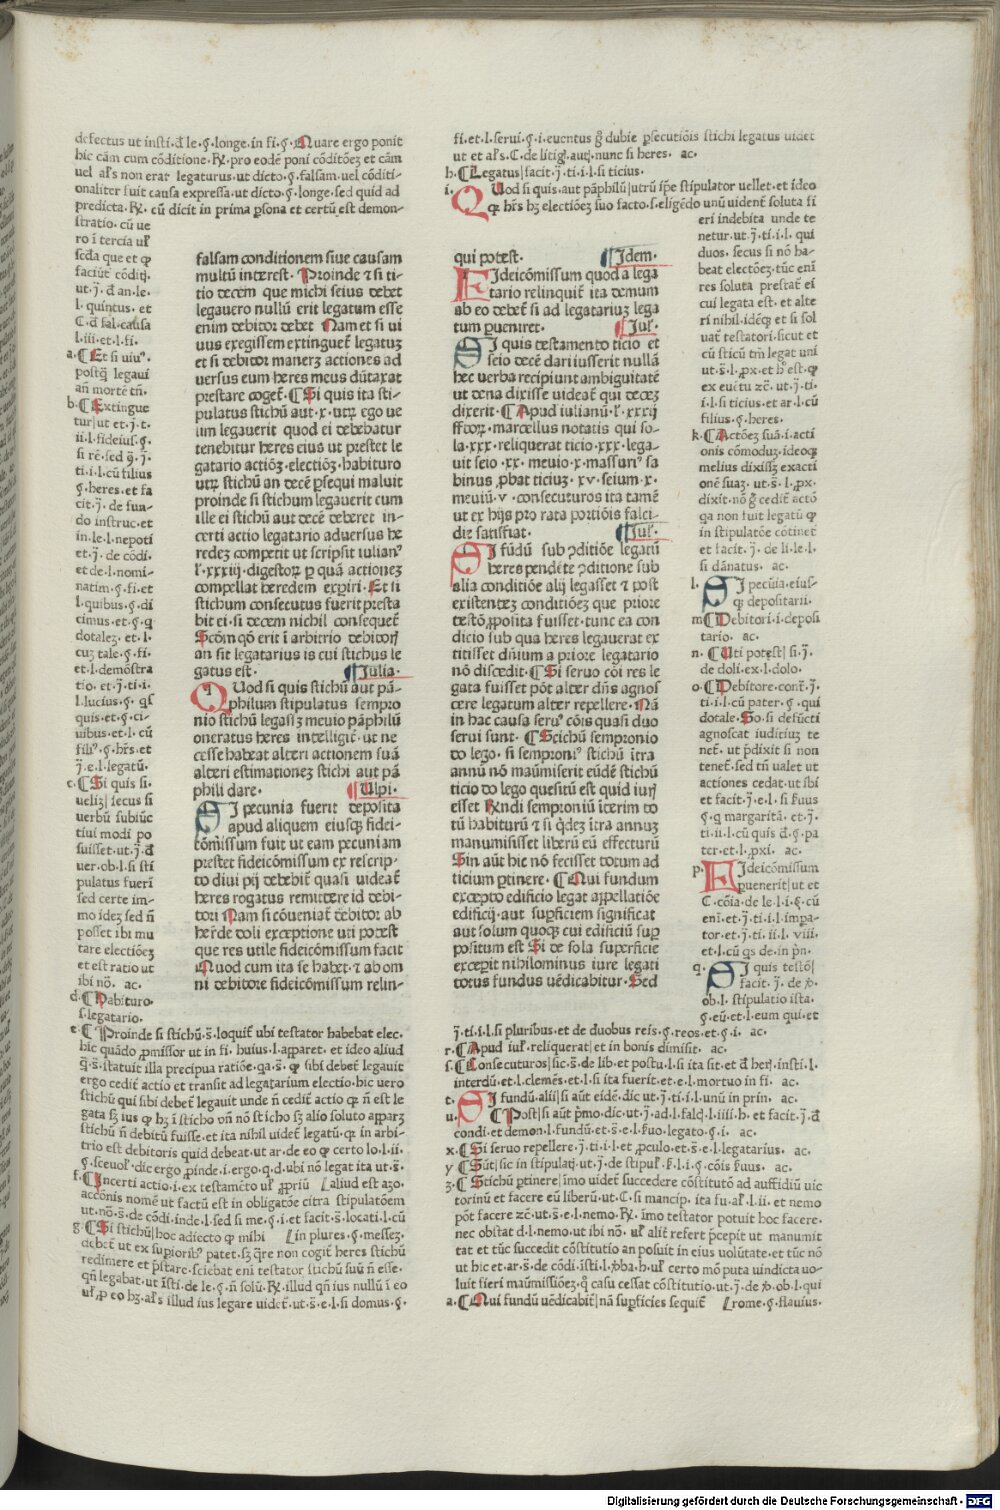 defectus ut insti. đ le. §. longe. in fi. §. Quare ergo ponit
hic cām cum cōditione. R̷. pro eodē poni cōditōeʒ et cām
uel al's non erat legaturus. ut dicto. §. falsam. uel cōditi-
onaliter fuit causa expressa. ut dicto. §. longe. sed quid ad
predicta. R̷. cū dicit in prima ꝑsona et certū est demon-
stratio. cū ue
a. Et si viu⁹.
postꝙ̄ legaui
b. Extingue
tur| ut et. j̄. t.
ti. i. l. cū filius
§. heres. et fa
cit. j̄. de fun-
do instruc. et
in. le. l. nepoti
et. j̄. de cōdi.
et de. l. nomi-
natim. §. fi. et
l. quibus. §. di
timus. et. §. q
dotaleʒ. et. l.
cuʒ tale. §. fi.
et. l. demōstra
tio. et. j̄. ti. i.
quis. et. §. ci-
uibus. et. l. cū
j̄. e. l. legatū.
c. Si quis si.
ueliʒ| secus si
uerbū subiūc
tiui modi po
suisset. ut. j̄. đ
uer. ob. l. si sti
pulatus fuerī
sed certe im-
mo ideʒ sed n̄
posset ibi mu
tare electiōeʒ
et est ratio ut
ibi nō. ac.
d. Habituro.
s. legatario.
falsam conditionem siue causam
multū interest. Proinde ⁊ si ti-
tio decem que michi seius debet
legauero nullū erit legatum esse
enim debitor debet Nam et si ui
uus exegissem extinguet̄ legatuʒ
et si debitor maneret actiones ad
uersus eum heres meus dūtaxat
prestare coget̄. Si quis ita sti-
pulatus stichū aut. x. utꝝ ego ue
lim legauerit quod ei debebatur
tenebitur heres eius ut prestet le
gatario actiōʒ. electiōʒ. habituro
utꝝ stichū an decē ꝑsequi maluit
proinde si stichum legauerit cum
ille ei stichū aut decē deberet in-
certi actio legatario aduersus he
redeʒ competit ut scripsit iulian⁹
l. xxxiij. digestoꝝ ꝑ quā actioneʒ
compellat heredem exꝑiri. Et si
stichum consecutus fuerit presta
bit ei. si decem nichil consequet̄
Scd̄m qd̄ erit ī arbitrio debitorʲ
an sit legatarius is cui stichus le
gatus est. Julia.
Quod si quis stichū aut pā-
philum stipulatus sempro
nio stichū legasʒ meuio pāphilū
oneratus heres intelligit̄. ut ne
cesse habeat alteri actionem suā
alteri estimationeʒ stichi aut pā
phili dare. Vlpi.
Si pecunia fuerit deposita
apud aliquem eiusqʒ fidei-
cōmissum fuit ut eam pecuniam
prestet fideicōmissum ex rescrip-
to diui pij debebit̄ quasi uideat̄
heres rogatus remittere id debi-
tori Nam si cōueniat̄ debitor ab
her̄de doli exceptione uti potest
que res utile fideicōmissum facit
Quod cum ita se habet. ⁊ ab om
ni debitore fideicōmissum relin-
e. Proinde si stichū. s̄. loquit̄ ubi testator habebat elec.
hic quādo ꝓmissor ut in fi. huius. l. apparet. et ideo aliud
q̄. s̄. statuit illa precipua ratiōe. qa. s̄. qꝫ sibi debet̄ legauit
ergo cedit̄ actio et transit ad legatarium electio. hic uero
stichū qui sibi debet̄ legauit unde n̄ cedit̄ actio qꝫ n̄ est le
stichū n̄ debitū fuisse. et ita nihil uidet̄ legatū. qꝫ in arbi-
trio est debitoris quid debeat. ut ar. de eo qꝫ certo lo. l. ii.
f. Incerti actio. i. ex testamēto ul' ꝓpriū aliud est aʒo.
accōnis nomē ut factū est in obligatōe citra stipulatōem
ut. nō. s̄. de cōdi. inde. l. sed si me. §. i. et facit. s̄. locati. l. cū
g. Si stichū| hoc adiecto qꝫ mihi in plures. §. messeʒ.
debet̄ ut ex suꝑiorib⁹ patet. sʒ q̄re non cogit̄ heres stichū
redimere et p̄stare. sciebat eni testator stichū suū n̄ esse.
qn̄ legabat. ut īsti. de le. §. n̄ solū. R̷. illud qn̄ ius nullū ī eo
fi. et. l. serui. §. i. euentus ḡ dubie ꝑsecutiōis stichi legatus uidet̄
ut et al's. C. de litig. autʲ. nunc si heres. ac.
h. Legatus| facit. j̄. ti. i. l. si ticius.
i. Quod si quis. aut pāphilū| utrū ip̄e stipulator uellet. et ideo
qꝫ hr̄s hʒ electiōeʒ suo facto. s. eligēdo unū uident̄ soluta fi
eri indebita unde te
netur. ut. j̄. ti. i. l. qui
duos. secus si nō ha-
beat electōeʒ. tūc enī
res soluta prestat̄ ei
cui legata est. et alte
ri nihil. idēqʒ et si sol
uat̄ testatori. sicut et
cū sticū tm̄ legat uni
ut. s̄. l. ꝓx. et h⁹ est. qꝫ
ex euētu ʒc̄. ut. j̄. ti.
i. l. si ticius et ar. l. cū
filius. §. heres.
k. Actōeʒ suā. i. acti
onis cōmoduʒ. ideoqʒ
melius dixissʒ exacti
onē suaʒ. ut. s̄. l. ꝓx.
dixit. nō ḡ cedit̄ actō
qa non fuit legatū qꝫ
in stipulatōe cōtinet̄
et facit. j̄. de li. le. l.
si dānatus. ac.
l. Si pecūia. eius-
qʒ depositarii.
m. Debitori. i. deposi
tario. ac.
n. Uti potest| si. j̄.
de doli. ex. l. dolo.
o. Debitore. cont̄. j̄.
ti. i. l. cū pater. §. qui
dotale. So. si defūcti
agnoscat iuditiuʒ te
net̄. ut p̄dixit si non
tenet̄. sed tn̄ ualet ut
actiones cedat. ut ibi
et facit. j̄. e. l. si ẜuus
§. q margaritā. et. j̄.
ti. ii. l. cū quis đ. §. pa
ter. et. l. ꝓxi. ac.
p. Fideicōmissum
ꝑuenerit| ut et
C. cōia. de le. l. i. §. cū
enī. et. j̄. ti. i. l. impa-
tor. et. j̄. ti. ii. l. viii.
et. l. cū qs de. in p̄n.
q. Si quis testō|
facit. j̄. de ꝟ.
ob. l. stipulatio ista.
§. eū. et. l. eum qui. et
qui potest. Idem.
Fideicōmissum quod a lega
tario relinquit̄ ita demum
ab eo debet̄ si ad legatariuʒ lega
tum ꝑueniret. Iul'.
Si quis testamento ticio et
seio decē dari iusserit nullā
hec uerba recipiunt ambiguitatē
ut dena dixisse uideat̄ qui deceʒ
dixerit. Apud iulianū. l'. xxxij
ffoꝝ. marcellus notatis qui so-
la. xxx. reliquerat ticio. xxx. lega-
uit seio. xx. meuio. x. massuri⁹ sa
binus ꝓbat ticiuʒ. xv. seium. x.
meuiū. v. consecuturos ita tamē
ut ex hijs pro rata portiōis falci-
die satisfiat. Iul'.
Si fūdū sub ꝯditiōe legatū
heres pendēte ꝯditione sub
alia conditiōe alij legasset ⁊ post
existenteʒ conditiōeʒ que priore
testō ꝓposita fuisset. tunc ea con
dicio sub qua heres legauerat ex
titisset dn̄ium a priore legatario
nō discedit. Si seruo cōi res le
gata fuisset pōt alter dn̄s agnos
cere legatum alter repellere. Nā
in hac causa seru⁹ cōis quasi duo
serui sunt. Stichū sempronio
do lego. si semproni⁹ stichū ītra
annū nō maūmiserit eūdē stichū
ticio do lego quesitū est quid iurʲ
esset R̷ndi semproniū īterim to
tū habiturū ⁊ si qdeʒ ītra annuʒ
manumisisset liberū eū effecturū
Sin aūt hic nō fecisset totum ad
ticium ꝑtinere. Qui fundum
excepto edificio legat appellatiōe
edificij. aut suꝑficiem significat
aut solum quoqʒ cui edificiū suꝑ
positum est Si de sola superficie
exceꝑit nihilominus iure legati
totus fundus uēdicabitur. Sed
j̄. ti. i. l. si pluribus. et de duobus reis. §. reos. et. §. i. ac.
r. Apud iul'. reliquerat| et in bonis dimisit. ac.
s. Consecuturos| sic. s̄. de lib. et postu. l. si ita sit. et đ herʲ. insti. l.
interdū. et. l. clemēs. et. l. si ita fuerit. et. e. l. mortuo in fi. ac.
t. Si fundū. alii| si aūt eidē. dic ut. j̄. ti. i. l. unū in prin. ac.
u. Post| si aūt p̄mo. dic ut. j̄. ad. l. falcʲ. l. iiii. h. et facit. j̄. đ
condi. et demon. l. fundū. et. s̄. e. l. suo. legato. §. i. ac.
x. Si seruo repellere. j̄. ti. i. l. et ꝓculo. et. s̄. e. l. legatarius. ac.
y Sūt| sic in stipulatʲ. ut. j̄. de stipul'. ẜ. l. i. §. cōis ẜuus. ac.
ʒ. Stichū ꝑtinere| īmo uidet̄ succedere cōstitutō ad auffidiū uic
torinū et facere eū liberū. ut. C. si mancip. ita fu. al'. l. ii. et nemo
pōt facere ʒc̄. ut. s̄. e. l. nemo. R̷. īmo testator potuit hoc facere.
nec obstat đ. l. nemo. ut ibi nō. ul' alit̄ refert p̄cepit ut manumit
tat et tūc succedit cōstitutio an posuit in eius uolūtate. et tūc nō
ut hic et ar. s̄. de cōdi. īsti. l. ꝟba. h. ul' certo mō puta uindicta uo-
luit fieri maūmissiōeʒ. qꝫ casu cessat cōstitutio. ut. j̄. de ꝟ. ob. l. qui
a. Qui fundū uēdicabit̄| nā suꝑficies sequit̄ rome. §. flauius.
Digitalisierung gefördert durch die Deutsche Forschungsgemeinschaft - DFG